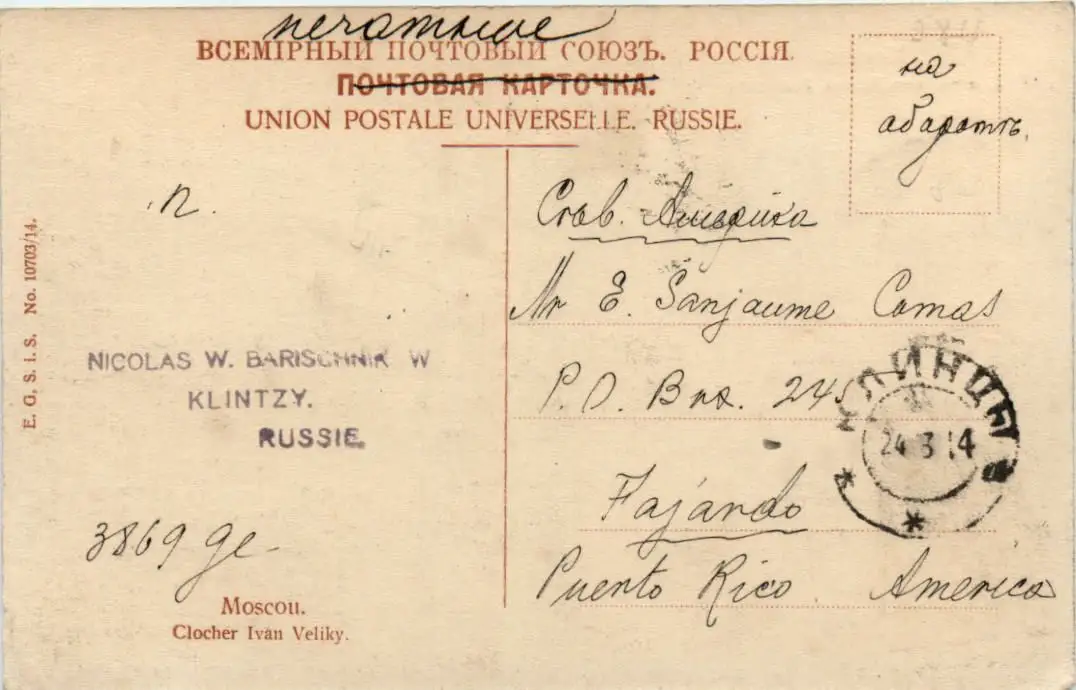 печатное
ВСЕМІРНЫЙ ПОЧТОВЫЙ СОЮЗЪ. РОССІЯ.
ПОЧТОВАЯ КАРТОЧКА.
UNION POSTALE UNIVERSELLE. RUSSIE.
на
абаротъ
п.
Сѣв. Америка
Mr E. Sanjaume Comas
P. O. Box. 245
Fajardo
Puerto Rico America
КЛИНЦЫ
24 3 14
NICOLAS W. BARISCHNIKOW
KLINTZY.
RUSSIE.
3869 ge
Moscou.
Clocher Ivan Veliky.
E. G. S. I. S. No. 10703/14.